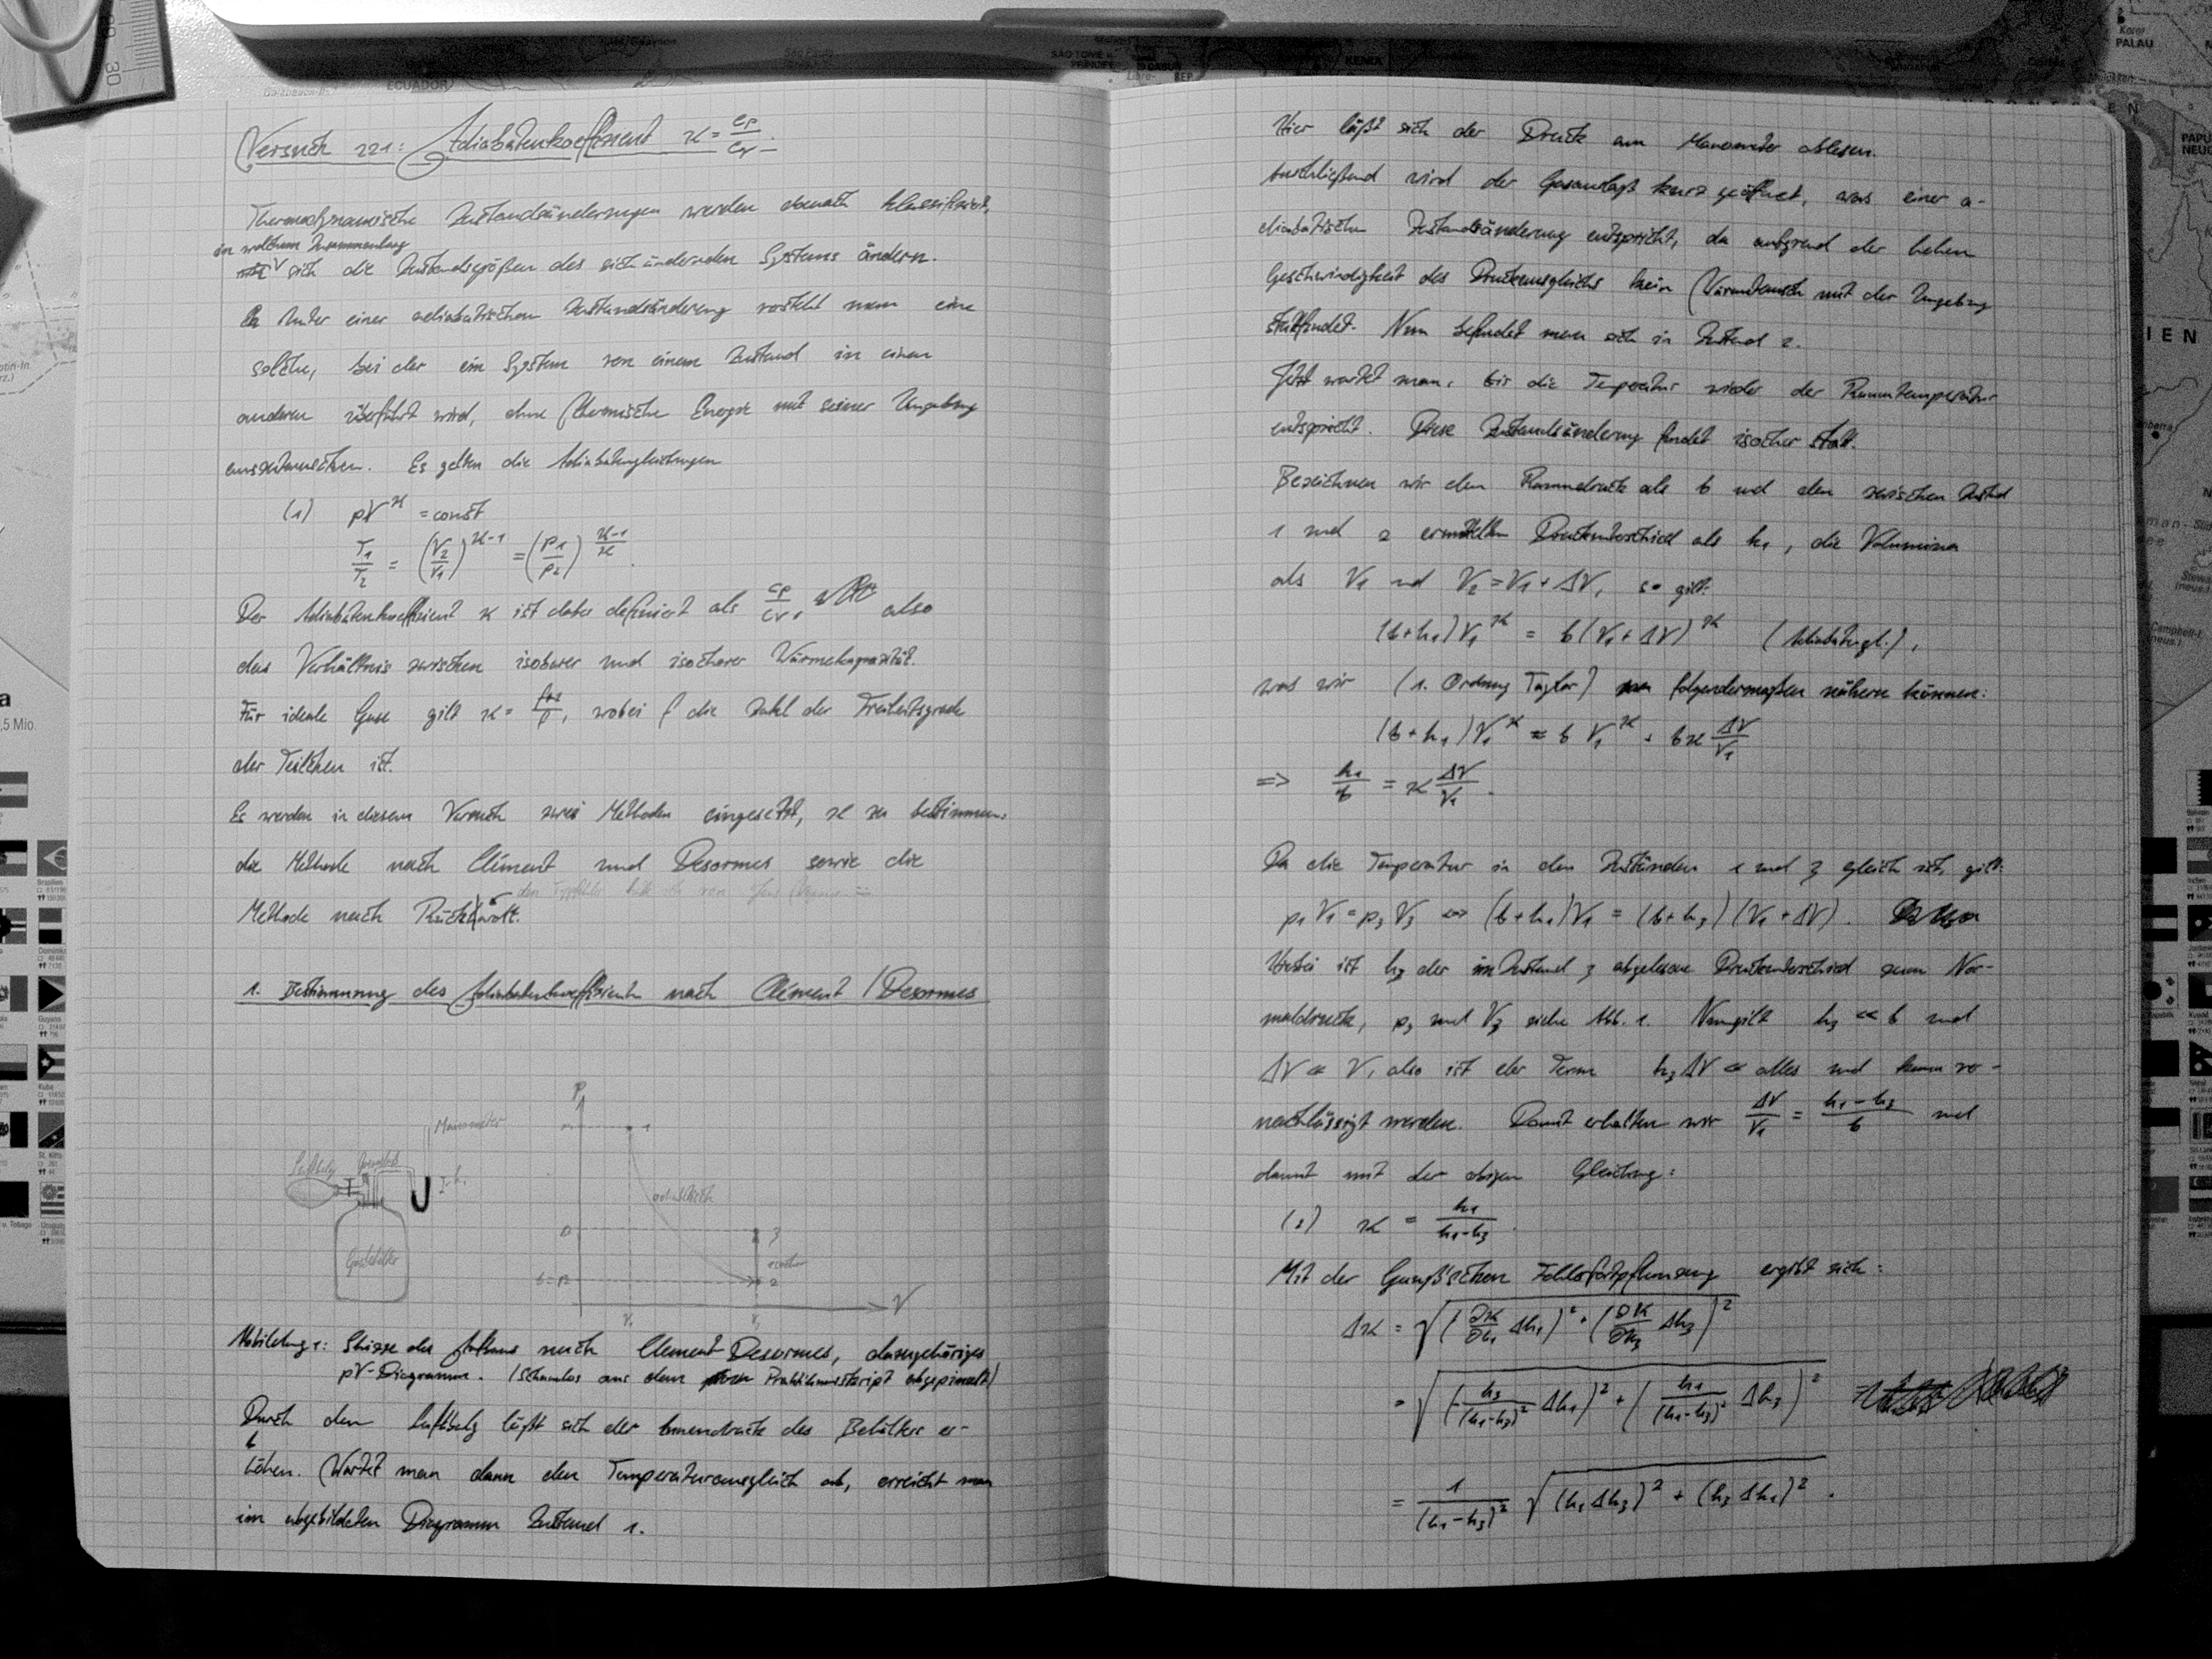 Versuch 221: Adiabatenkoeffizient ϰ = cp/cv.
Thermodynamische Zustandsänderungen werden danach klassifiziert,
in welchem Zusammenhang
sich die Zustandsgrößen des sich ändernden Systems ändern.
Unter einer adiabatischen Zustandsänderung versteht man eine
solche, bei der ein System von einem Zustand in einen
anderen überführt wird, ohne thermische Energie mit seiner Umgebung
auszutauschen. Es gelten die Adiabatengleichungen
(1) pV^ϰ = const
T1/T2 = (V2/V1)^(ϰ-1) = (P1/P2)^((ϰ-1)/ϰ).
Der Adiabatenkoeffizient ϰ ist dabei definiert als cp/cv, also
das Verhältnis zwischen isobarer und isochorer Wärmekapazität.
Für ideale Gase gilt ϰ = (f+2)/f, wobei f die Zahl der Freiheitsgrade
der Teilchen ist.
Es werden in diesem Versuch zwei Methoden eingesetzt, ϰ zu bestimmen:
die Methode nach Clément und Desormes sowie die
Methode nach Rüchardt.
1. Bestimmung des Adiabatenkoeffizienten nach Clément / Desormes
P
Manometer
Luftbalg
Gasbehälter
1
adiabatisch
3
isochor
2
V
V1
Abbildung 1: Skizze des Aufbaus nach Clement Desormes, dazugehöriges
pV-Diagramm. (Schamlos aus dem Praktikumsskript abgepinselt)
Durch den Luftbalg läßt sich der Innendruck des Behälters er-
höhen. Wartet man dann den Temperaturausgleich ab, erreicht man
im abgebildeten Diagramm Zustand 1.
Hier läßt sich der Druck am Manometer ablesen.
Anschließend wird der Gasauslaß kurz geöffnet, was einer a-
diabatischen Zustandsänderung entspricht, da aufgrund der hohen
Geschwindigkeit des Druckausgleichs kein Wärmetausch mit der Umgebung
stattfindet. Nun befindet man sich in Zustand 2.
Jetzt wartet man, bis die Temperatur wieder der Raumtemperatur
entspricht. Diese Zustandsänderung findet isochor statt.
Bezeichnen wir den Raumdruck als b und den zwischen Zustand
1 und 2 ermittelten Druckunterschied als h1, die Volumina
als V1 und V2 = V1 + ΔV, so gilt:
(b+h1)V1^ϰ = b(V1+ΔV)^ϰ (Adiabatengl.),
was wir (1. Ordnung Taylor) folgendermaßen nähern können:
(b+h1)V1^ϰ ≈ b V1^ϰ + bϰ ΔV/V1
=> h1/b = ϰ ΔV/V1.
Da die Temperatur in den Zuständen 1 und 3 gleich ist, gilt:
p1V1 = p3V3 <=> (b+h1)V1 = (b+h3)(V1+ΔV).
Hierbei ist h3 der im Zustand 3 abgelesene Druckunterschied zum Nor-
maldruck, p3 und V3 siehe Abb. 1. Nun gilt h3 << b und
ΔV << V, also ist der Term h3ΔV << alles und kann ver-
nachlässigt werden. Damit erhalten wir ΔV/V1 = (h1-h3)/b und
damit mit der obigen Gleichung:
(2) ϰ = h1/(h1-h3).
Mit der Gauß'schen Fehlerfortpflanzung ergibt sich:
Δϰ = √((∂ϰ/∂h1 Δh1)² + (∂ϰ/∂h3 Δh3)²)
= √((-h3/(h1-h3)² Δh1)² + (h1/(h1-h3)² Δh3)²)
= 1/(h1-h3)² √((h1Δh3)² + (h3Δh1)²).
ECUADOR
KENIA
PALAU
30